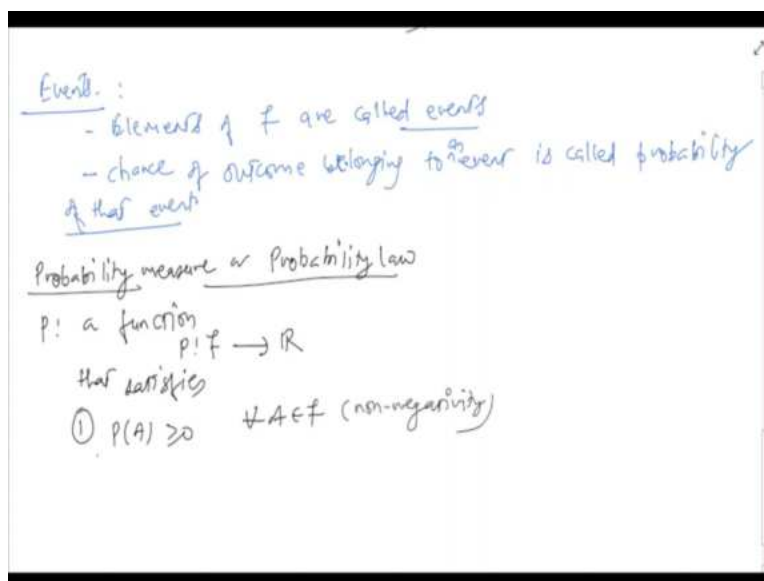 Events. :
- Elements of F are called events
- chance of outcome belonging to an event is called probability
of that event
Probability measure or Probability law
P: a function
P: F → ℝ
that satisfies
① P(A) ≥ 0 ∀ A ∈ F (non-negativity)